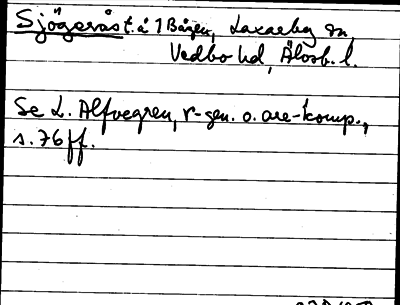 Sjögerås t. å 1 Bågen, Laxarby sn,
Vedbo hd, Älvsb. l.
Se L. Alfvegren, r-gen. o. are-komp.,
s. 76 ff.